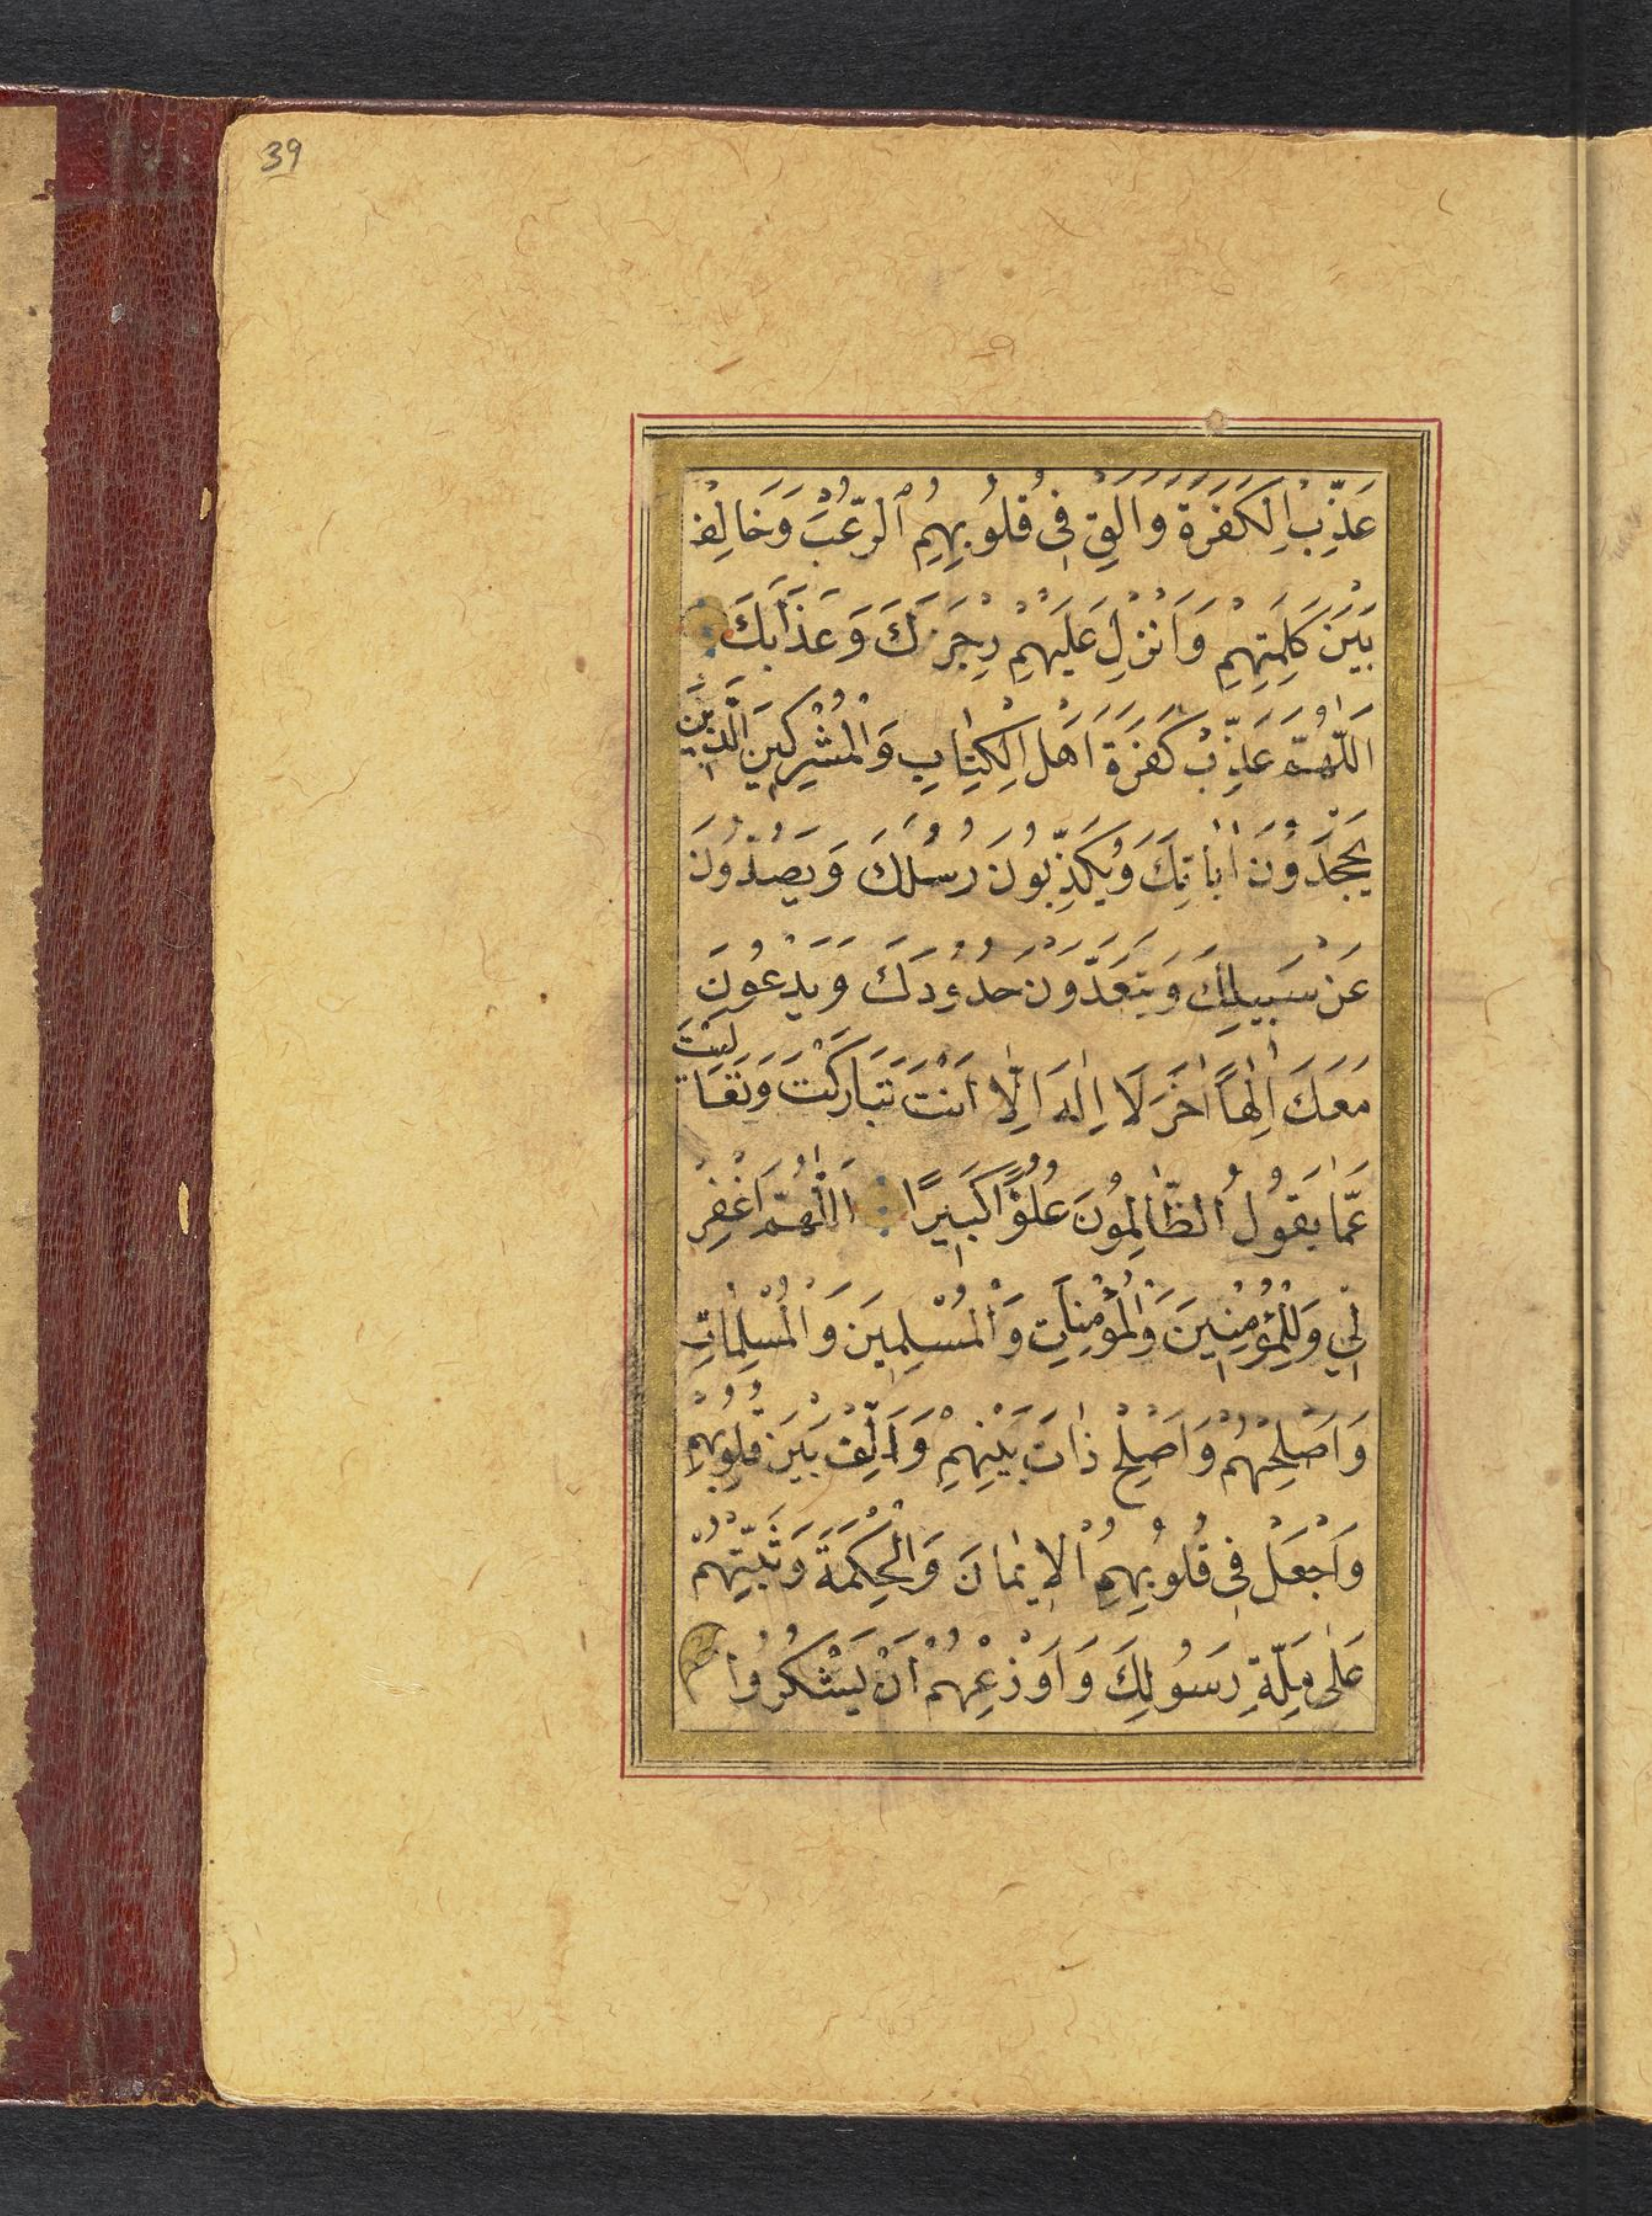 39
عَذِّبِ الْكَفَرَةَ وَاَلْقِ فِى قُلُوبِهِمُ الرُّعْبَ وَخَالِفْ
بَيْنَ كَلِمَتِهِمْ وَاَنْزِلْ عَلَيْهِمْ رِجْزَكَ وَعَذَابَكَ
اَللّٰهُمَّ عَذِّبْ كَفَرَةَ اَهْلِ الْكِتَابِ وَالْمُشْرِكِينَ الَّذِينَ
يَجْحَدُونَ اٰيَاتِكَ وَيُكَذِّبُونَ رُسُلَكَ وَيَصُدُّونَ
عَنْ سَبِيلِكَ وَيَتَعَدَّوْنَ حُدُودَكَ وَيَدْعُونَ
مَعَكَ اِلٰهًا اٰخَرَ لَا اِلٰهَ اِلَّا اَنْتَ تَبَارَكْتَ وَتَعَالَيْتَ
عَمَّا يَقُولُ الظَّالِمُونَ عُلُوًّا كَبِيرًا اَللّٰهُمَّ اغْفِرْ
لِي وَلِلْمُؤْمِنِينَ وَالْمُؤْمِنَاتِ وَالْمُسْلِمِينَ وَالْمُسْلِمَاتِ
وَاَصْلِحْهُمْ وَاَصْلِحْ ذَاتَ بَيْنِهِمْ وَاَلِّفْ بَيْنَ قُلُوبِهِمْ
وَاجْعَلْ فِى قُلُوبِهِمُ الْاِيمَانَ وَالْحِكْمَةَ وَثَبِّتْهُمْ
عَلٰى مِلَّةِ رَسُولِكَ وَاَوْزِعْهُمْ اَنْ يَشْكُرُوا